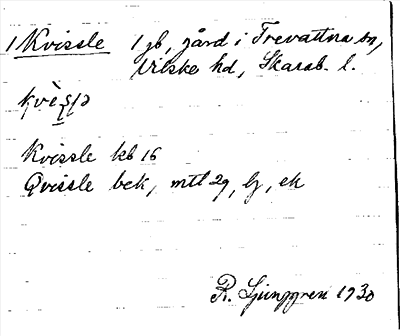 1 Kvissle 1 gb, gård i Trevattna sn,
Vilske hd, Skarab. l.
kvès̩lə
Kvissle kb 16
Qvissle bek, mtl 2g, lj, ek
R. Ljunggren 1930